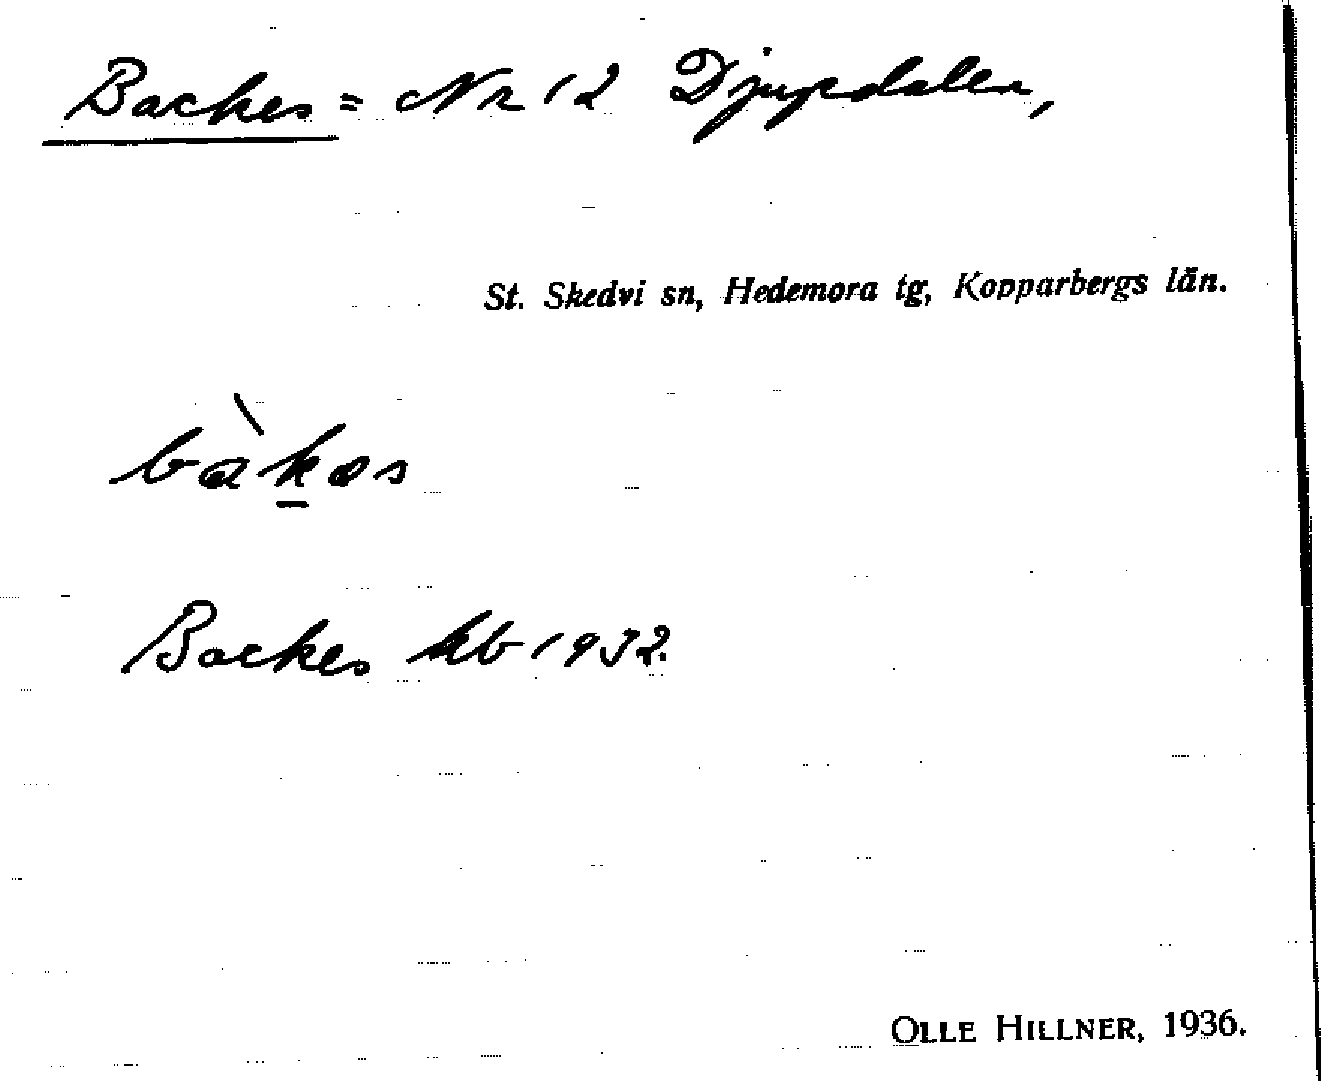 Backes = Nr 12 Djupdalen,
St. Skedvi sn, Hedemora tg, Kopparbergs län.
bàk̲əs
Backes kb 1932.
OLLE HILLNER, 1936.